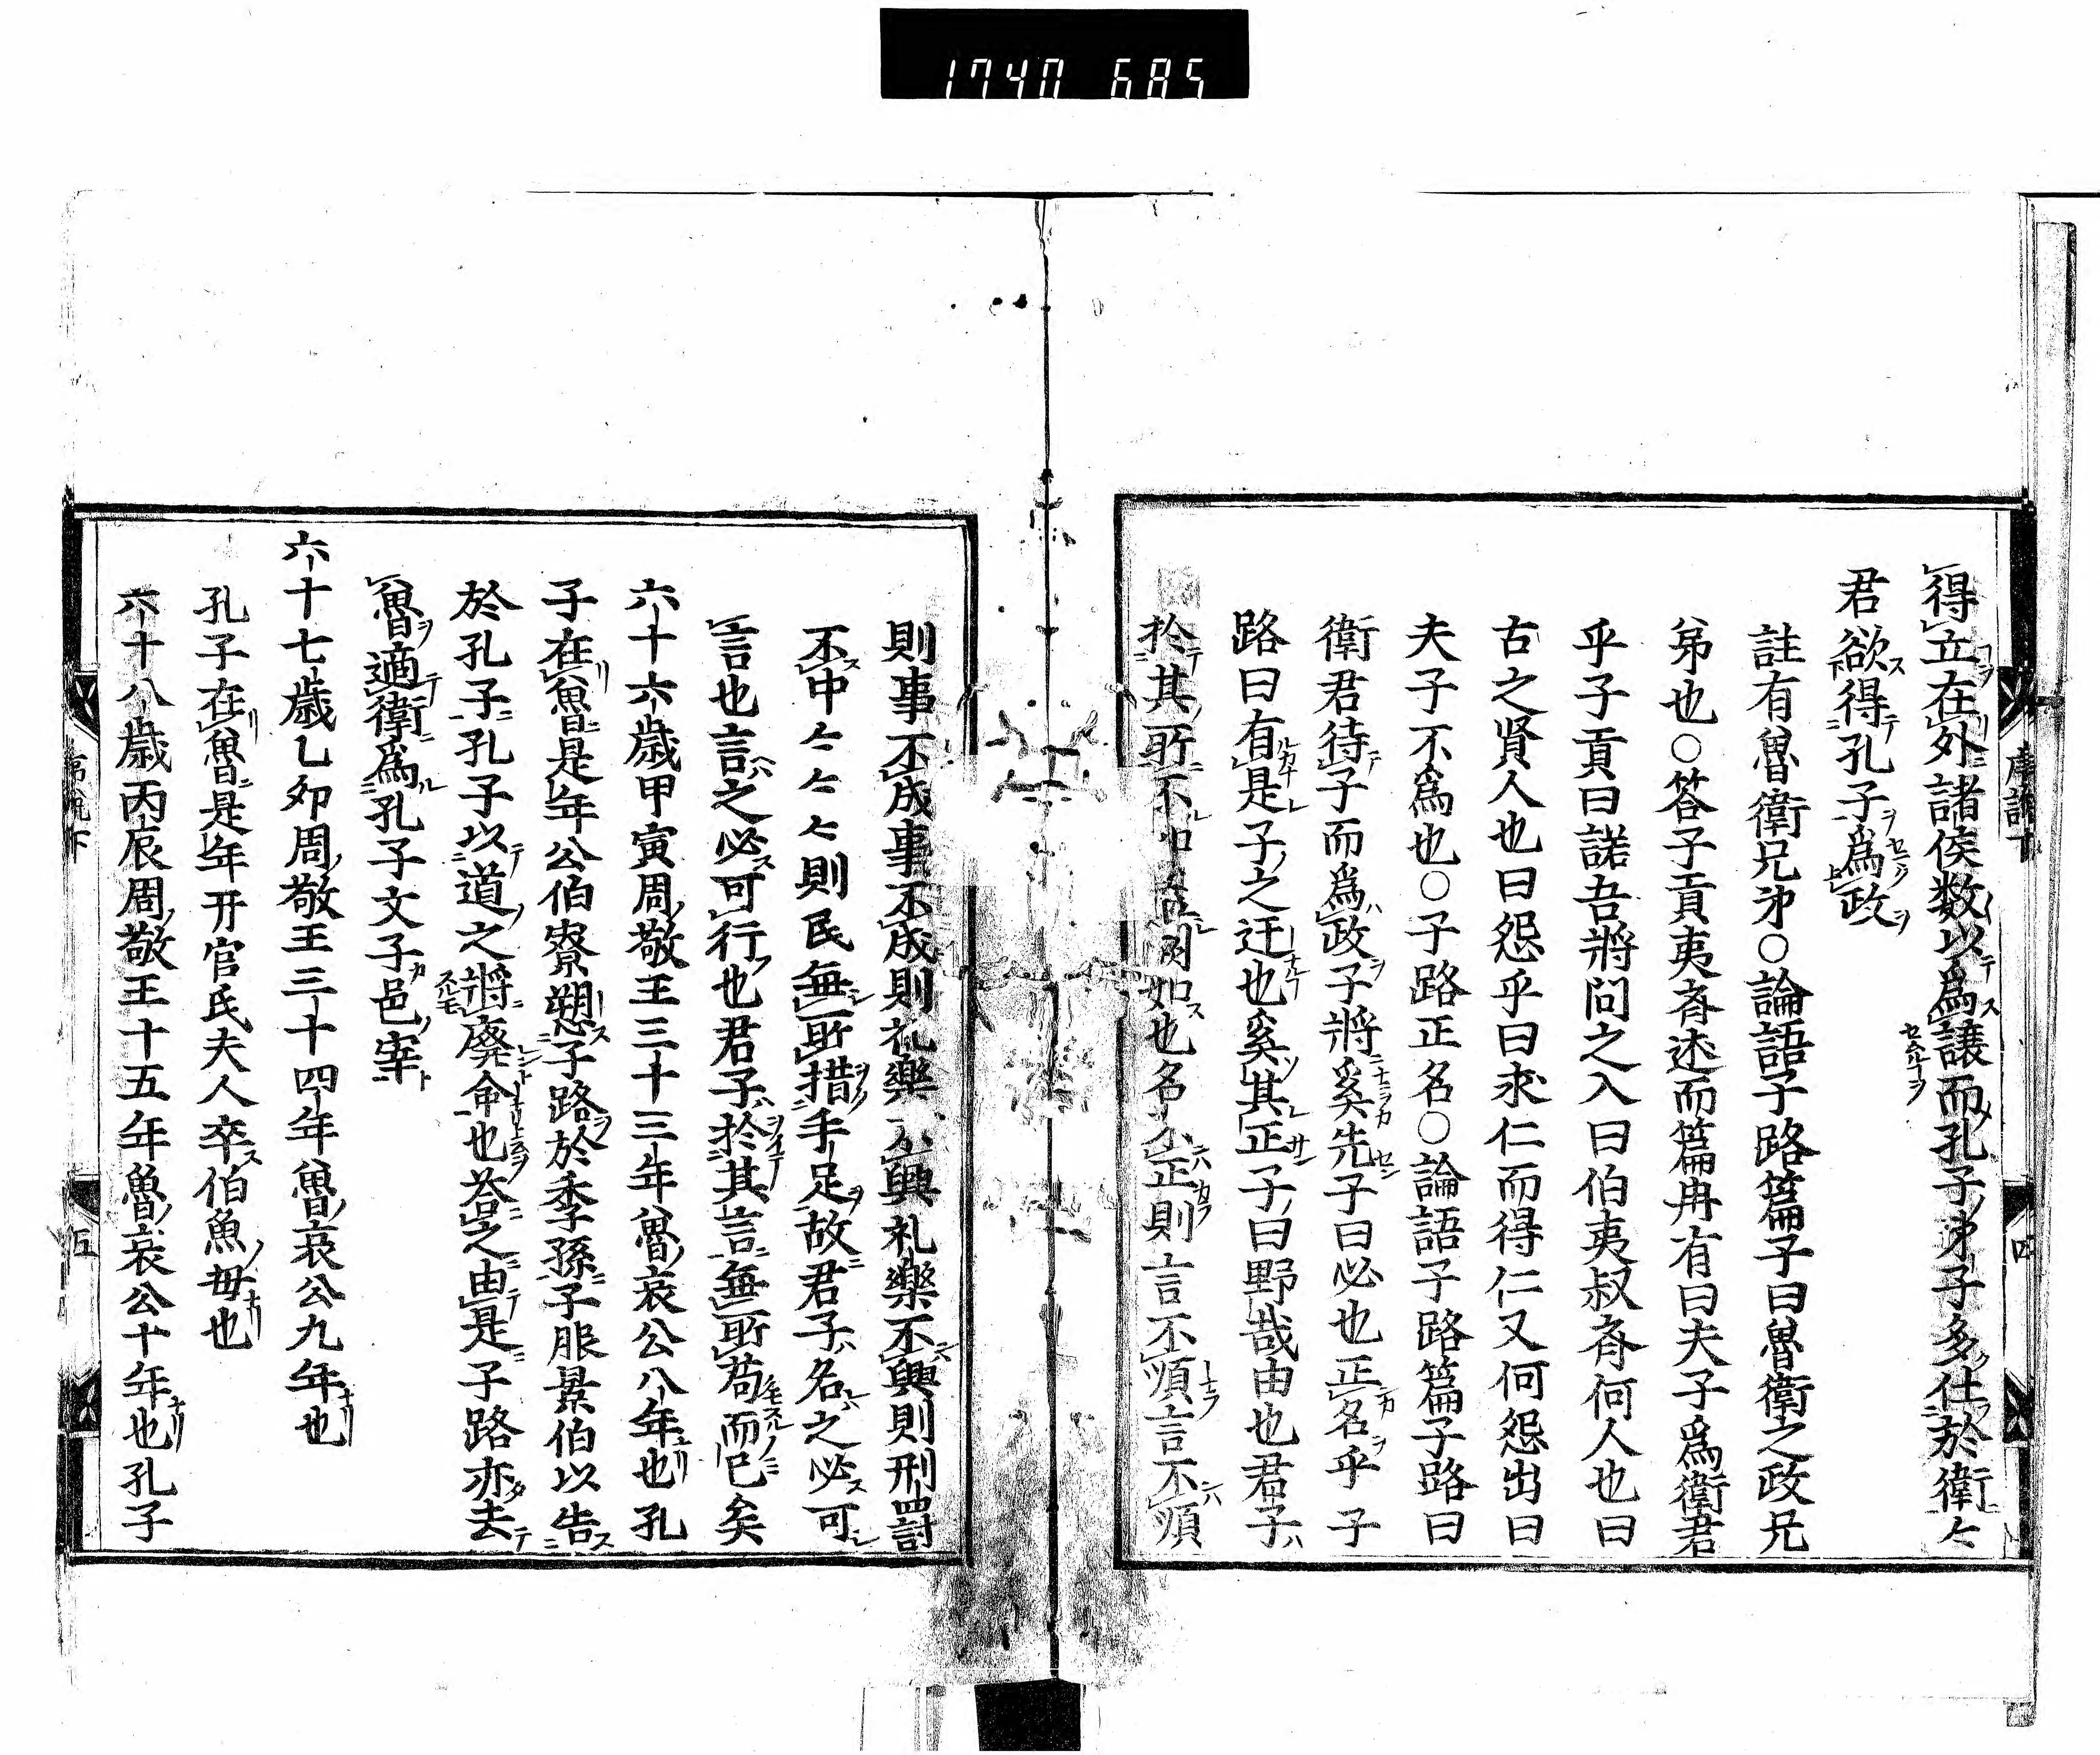 1740 685
得立在外諸侯数以為譲而孔子弟子多仕於衛々
君欲得孔子為政
註有魯衛兄弟○論語子路篇子曰魯衛之政兄
弟也○答子貢夷斉述而篇冉有曰夫子為衛君
乎子貢曰諾吾将問之入曰伯夷叔斉何人也曰
古之賢人也曰怨乎曰求仁而得仁又何怨出曰
夫子不為也○子路正名○論語子路篇子路曰
衛君待子而為政子将奚先子曰必也正名乎子
路曰有是子之迂也奚其正子曰野哉由也君子
於其所不 如也名不正則言不順言不順
則事不成事不成則礼楽不興礼楽不興則刑罰
不中々々々則民無所措手足故君子名之必可
言也言之必可行也君子於其言無所苟而已矣
六十六歳甲寅周敬王三十三年魯哀公八年也孔
子在魯是年公伯寮愬子路於季孫子服景伯以告
於孔子孔子以道之将廃命也答之由是子路亦去
魯適衛為孔子文子邑宰
六十七歳乙卯周敬王三十四年魯哀公九年也
孔子在魯是年开官氏夫人卒伯魚母也
六十八歳丙辰周敬王十五年魯哀公十年也孔子